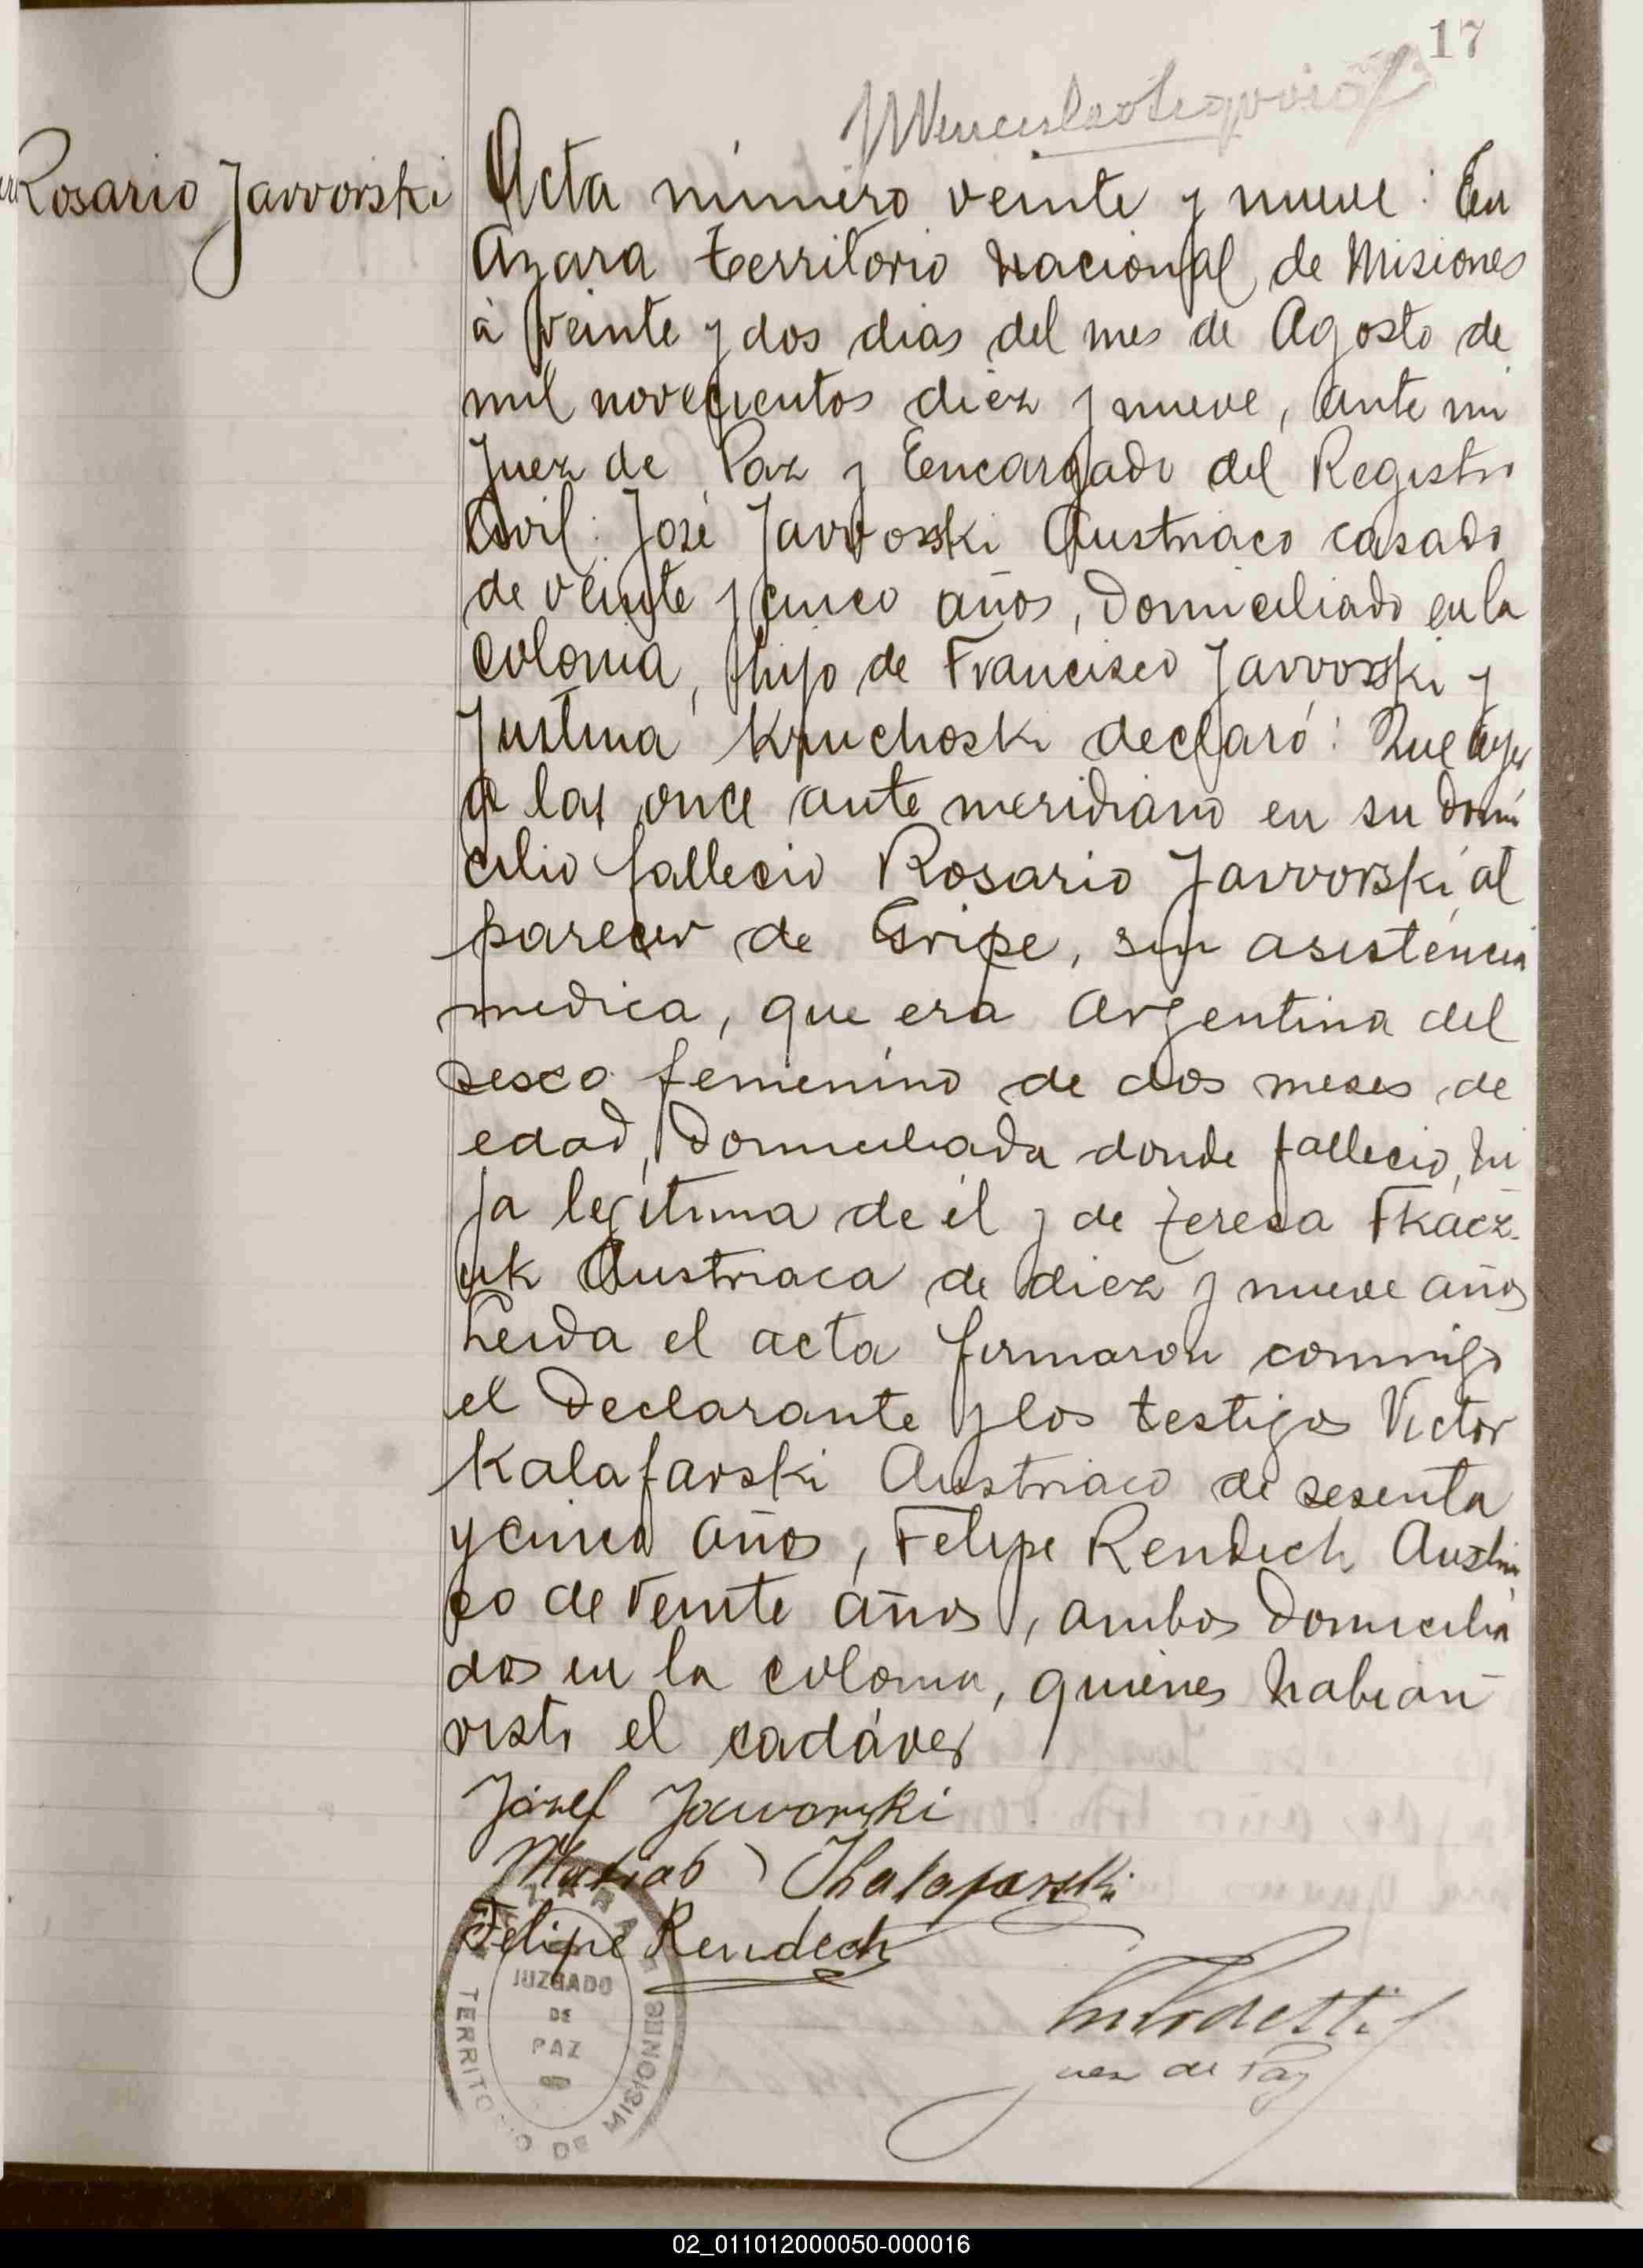 17
Rosario Javvorski
Acta número veinte y nueve: En
Azara territorio Nacional de Misiones
á veinte y dos dias del mes de Agosto de
mil novecientos diez y nueve, ante mi
Juez de Paz y Eencargado del Registro
Civil: José Javvorski Austriaco casado
de veinte y cinco años, domiciliado en la
colonia, hijo de Francisco Javvorski y
Justina Kruchoski declaró: Que ayer
a las once ante meridiano en su domi
cilio fallecio Rosario Javvorski al
parecer de Gripe, sin asistencia
medica, que era Argentina del
sexo femenino de dos meses de
edad, domiciliada donde fallecio, hi
ja legítima de él y de Teresa Tkacz-
uk Austriaca de diez y nueve años
Leida el acta firmaron conmigo
el declarante y los testigos Victor
Kalafarski Austriaco de sesenta
y cinco años, Felipe Rendich Austria
co de veinte años, ambos domicilia
dos en la colonia, quienes habian
visto el cadáver
Józef Jaworski
Khalafarski
Felipe Rendech
Juez de Paz
AZARA
JUZGADO
DE
PAZ
TERRITORIO DE MISIONES
02_011012000050-000016